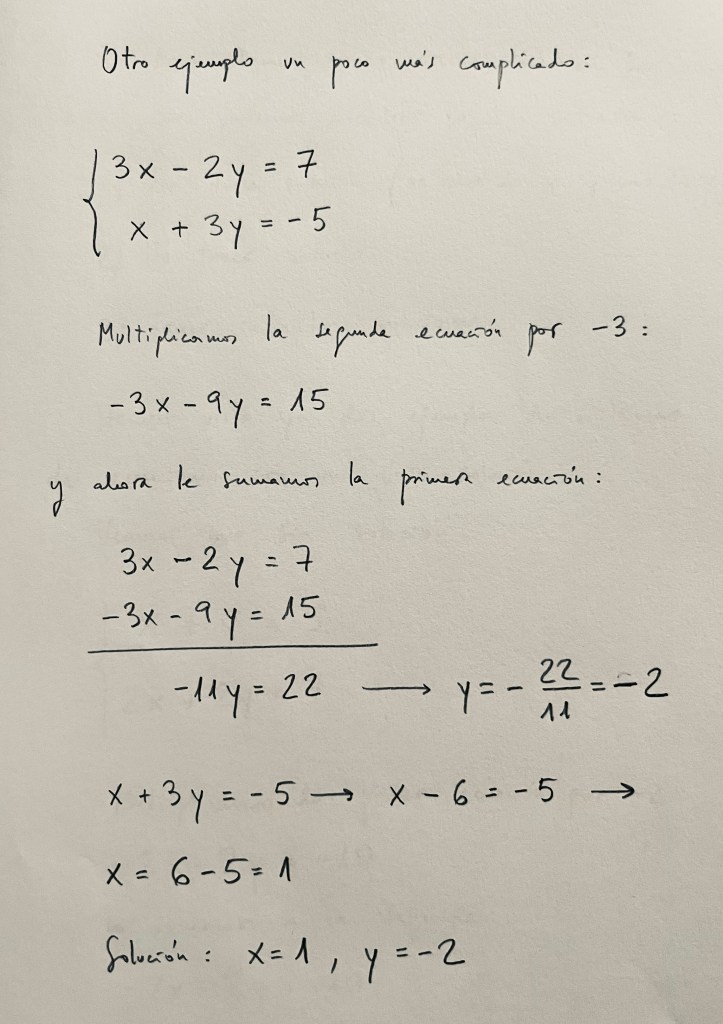 Otro ejemplo un poco más complicado:
3x - 2y = 7
x + 3y = -5
Multiplicamos la segunda ecuación por -3:
-3x - 9y = 15
y ahora le sumamos la primera ecuación:
3x - 2y = 7
-3x - 9y = 15
-11y = 22 → y = - 22/11 = -2
x + 3y = -5 → x - 6 = -5 →
x = 6 - 5 = 1
Solución: x = 1, y = -2